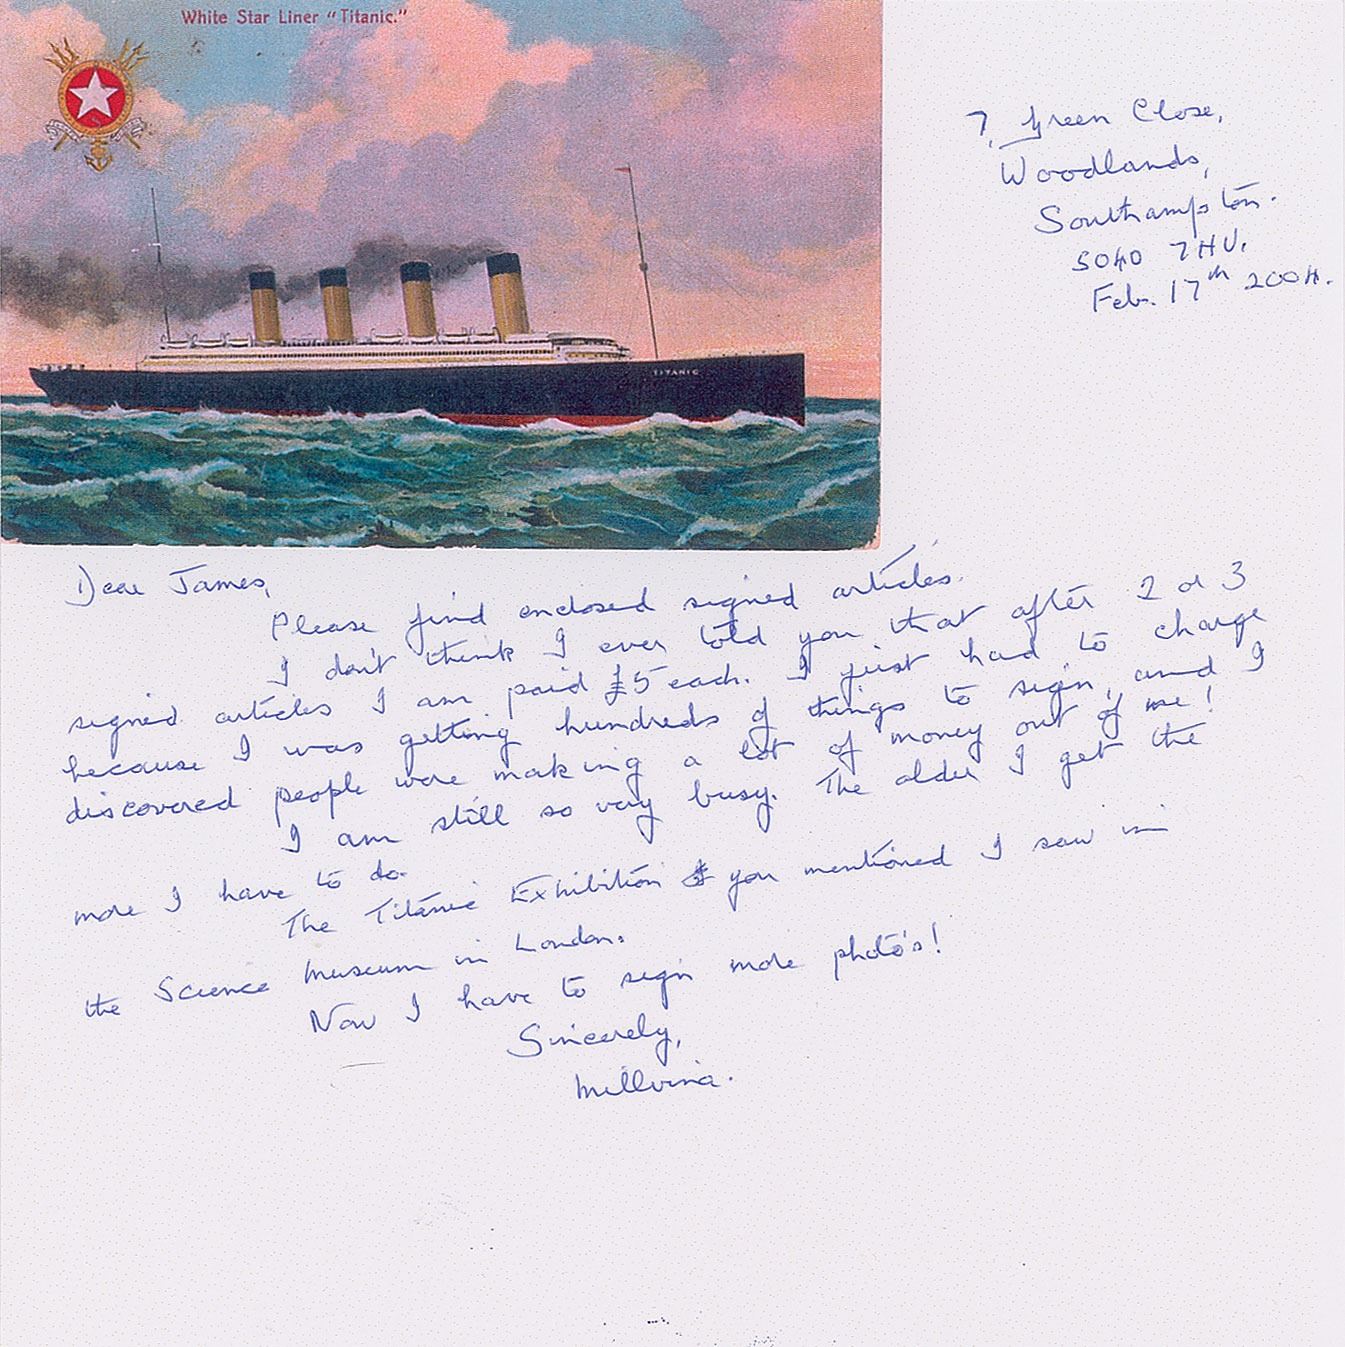 White Star Liner "Titanic."
TITANIC
7, Green Close,
Woodlands,
Southampton.
SO40 7HU.
Feb. 17th 2004.
Dear James,
Please find enclosed signed articles.
I don't think I ever told you that after 2 or 3
signed articles I am paid £5 each. I just had to charge
because I was getting hundreds of things to sign, and I
discovered people were making a lot of money out of me!
I am still so very busy. The older I get the
more I have to do.
The Titanic Exhibition you mentioned I saw in
the Science Museum in London.
Now I have to sign more photo's!
Sincerely,
Millvina.